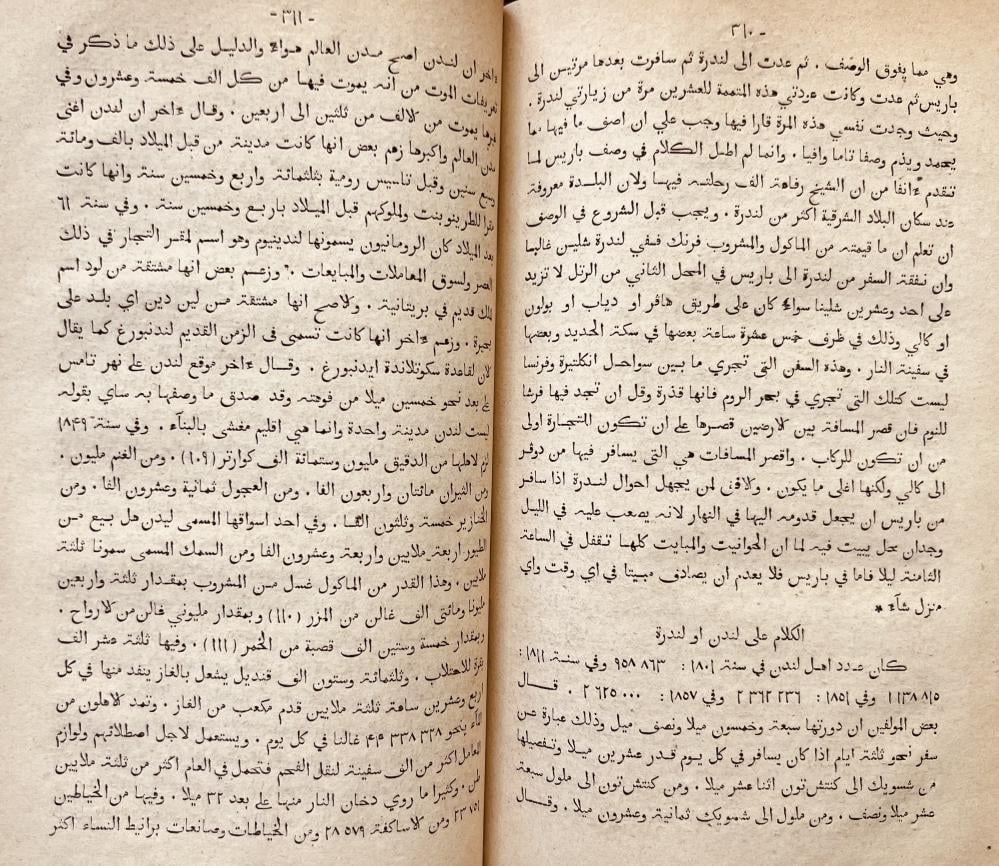 - ٣١٠ -
وهي مما يفوق الوصف . ثم عدت الى لندرة ثم سافرت بعدها مرتيس الى
باريس ثم عدت وكانت عودتي هذه المتممة للعشرين مرة من زيارتي لندرة .
وحيث وجدت نفسي هذه المرة قارا فيها وجب علي ان اصف ما فيها مما
يحمد ويذم وصفا تاما وافيا . وانما لم اطل الكلام في وصف باريس لما
تقدم ءانفا من ان الشيخ رفاعة الف رحلته فيها ولان البلدة معروفة
عند سكان البلاد الشرقية اكثر من لندرة . ويجب قبل الشروع في الوصف
ان تعلم ان ما قيمته من الماكول والمشروب فرنك ففي لندرة شلين غالبا
وان نفقة السفر من لندرة الى باريس في المحل الثاني من الرتل لا تزيد
على احد وعشرين شلينا سواء كان على طريق هافر او دياب او بولون
او كالي وذلك في ظرف خمس عشرة ساعة بعضها في سكة الحديد وبعضها
في سفينة النار . وهذه السفن التى تجري ما بين سواحل انكلتيرة وفرنسا
ليست كتلك التى تجري في بحر الروم فانها قذرة وقل ان تجد فيها فرشا
للنوم فان قصر المسافة بين الارضين قصرها على ان تكون للتجارة اولى
من ان تكون للركاب . واقصر المسافات هي التى يسافر فيها من دوفر
الى كالي ولكنها اغلى ما يكون . والاوفى لمن يجهل احوال لندرة اذا سافر
من باريس ان يجعل قدومه اليها في النهار لانه يصعب عليه في الليل
وجدان محل يبيت فيه لما ان الحوانيت والمبايت كلها تقفل في الساعة
الثامنة ليلا فاما في باريس فلا يعدم ان يصادف مبيتا في اي وقت واي
منزل شاء *
الكلام على لندن او لندرة
كان عدد اهل لندن في سنة ١٨٠١ : ٨٦٣ ٩٥٨ وفي سنة ١٨١١ :
٨١٥ ١١٣٨ وفي ١٨٥١ : ٢٣٦ ٣٦٢ ٢ وفي ١٨٥٧ : ٠٠٠ ٦٢٥ ٢ . قال
بعض المولفين ان دورتها سبعة وخمسون ميلا ونصف ميل وذلك عبارة عن
سفر نحو ثلثة ايام اذا كان يسافر في كل يوم قدر عشرين ميلا وتفصيلها
من شسويك الى كنتش تون اثنا عشر ميلا . ومن كنتش تون الى ملول سبعة
عشر ميلا ونصف . ومن ملول الى شمويك ثمانية وعشرون ميلا . وقال
- ٣١١ -
ءاخر ان لندن اصح مدن العالم هواء والدليل على ذلك ما ذكر في
تعريفات الموت من انه يموت فيها من كل الف خمسة وعشرون وفي
غيرها يموت من كالالف من ثلثين الى اربعين . وقال ءاخر ان لندن اغنى
مدن العالم واكبرها زعم بعض انها كانت مدينة من قبل الميلاد بالف ومائة
وسبع سنين وقبل تاسيس رومية بثلثمائة واربع وخمسين سنة وانها كانت
مقرا للطرينوبنت وملوكهم قبل الميلاد باربع وخمسين سنة . وفي سنة ٦١
بعد الميلاد كان الرومانيون يسمونها لندينيوم وهو اسم لمقر التجار في ذلك
العصر ولسوق المعاملات والمبايعات . وزعم بعض انها مشتقة من لود اسم
ملك قديم في بريتانية . والاصح انها مشتقة من لين دين اي بلد على
بحيرة . وزعم ءاخر انها كانت تسمى فى الزمن القديم لندنبورغ كما يقال
الان لقاعدة سكوتلاندة ايدنبورغ . وقال ءاخر موقع لندن على نهر تامس
على بعد نحو خمسين ميلا من فوهته وقد صدق ما وصفها به ساي بقوله
ليست لندن مدينة واحدة وانما هي اقليم مغشى بالبناء . وفي سنة ١٨٤٩
لزم لاهلها من الدقيق مليون وستمائة الف كوارتر (١٠٩) . ومن الغنم مليون .
ومن الثيران مائتان واربعون الفا . ومن العجول ثمانية وعشرون الفا . ومن
الخنازير خمسة وثلثون الفا . وفي احد اسواقها المسمى ليدن هل بيع من
الطيور اربعة ملايين واربعة وعشرون الفا ومن السمك المسمى سمونا ثلثة
ملايين . وهذا القدر من الماكول غسل من المشروب بمقدار ثلثة واربعين
مليونا ومائتى الف غالن من المزر (١١٠) وبمقدار مليوني غالن من الارواح .
وبمقدار خمسة وستين الف قصبة من الخمر (١١١) . وفيها ثلثة عشر الف
بقرة للاحتلاب . وثلثمائة وستون الف قنديل يشعل بالغاز ينفد منها في كل
اربع وعشرين ساعة ثلثة ملايين قدم مكعب من الغاز . وتمد الاهلون من
الماء بنحو ٣٢٨ ٣٣٨ ٤٤ غالنا في كل يوم . ويستعمل لاجل اصطلائهم ولوازم
المعامل اكثر من الف سفينة لنقل الفحم فتحمل في العام اكثر من ثلثة ملايين
طن . وكثيرا ما روي دخان النار منها على بعد ٣٢ ميلا . وفيها من الخياطين
٧٥١ ٢٣ ومن الاساكفة ٥٧٩ ٢٨ ومن الخياطات وصانعات برانيط النساء اكثر